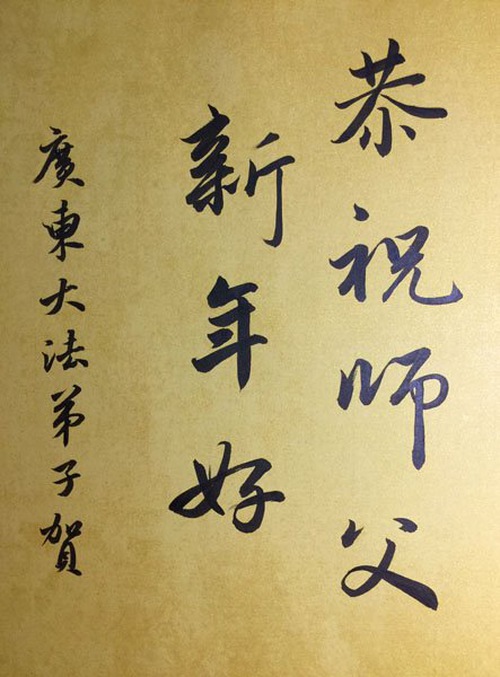 恭祝师父
新年好
廣東大法弟子賀